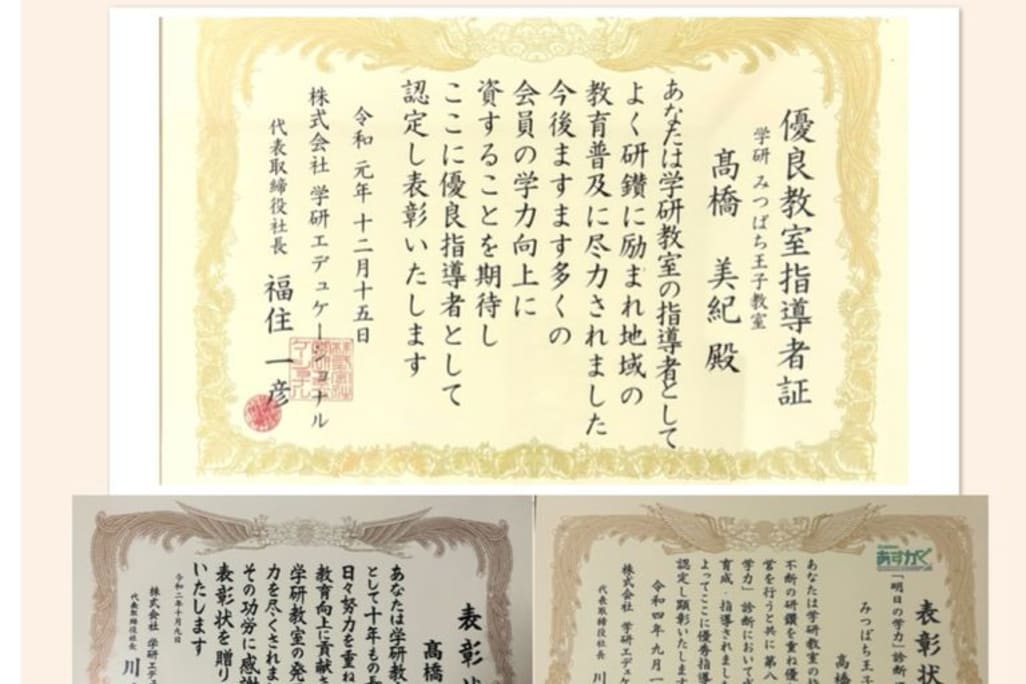 優良教室指導者証
学研 みつばち王子教室
髙橋 美紀 殿
あなたは学研教室の指導者として
よく研鑽に励まれ地域の
教育普及に尽力されました
今後ますます多くの
会員の学力向上に
資することを期待し
ここに優良指導者として
認定し表彰いたします
令和元年十二月十五日
株式会社 学研エデュケーショナル
代表取締役社長 福住一彦
表彰
髙橋
あなたは学研教
として十年もの長
日々努力を重ね
教育向上に貢献さ
学研教室の発
力を尽くされま
その功労に感謝
表彰状を贈り
いたします
令和二年十月九日
株式会社 学研エデ
代表取締役社長 川
あすがく
表彰状
「明日の学力」診断
みつばち王子
髙橋
あなたは学研教室の
不断の研鑽を重ね優
営を行うと共に第八
学力」診断において
育成・指導されまし
よってここに優秀指導
認定し顕彰いたします
令和四年九月一
株式会社 学研エデュ
代表取締役社長 川